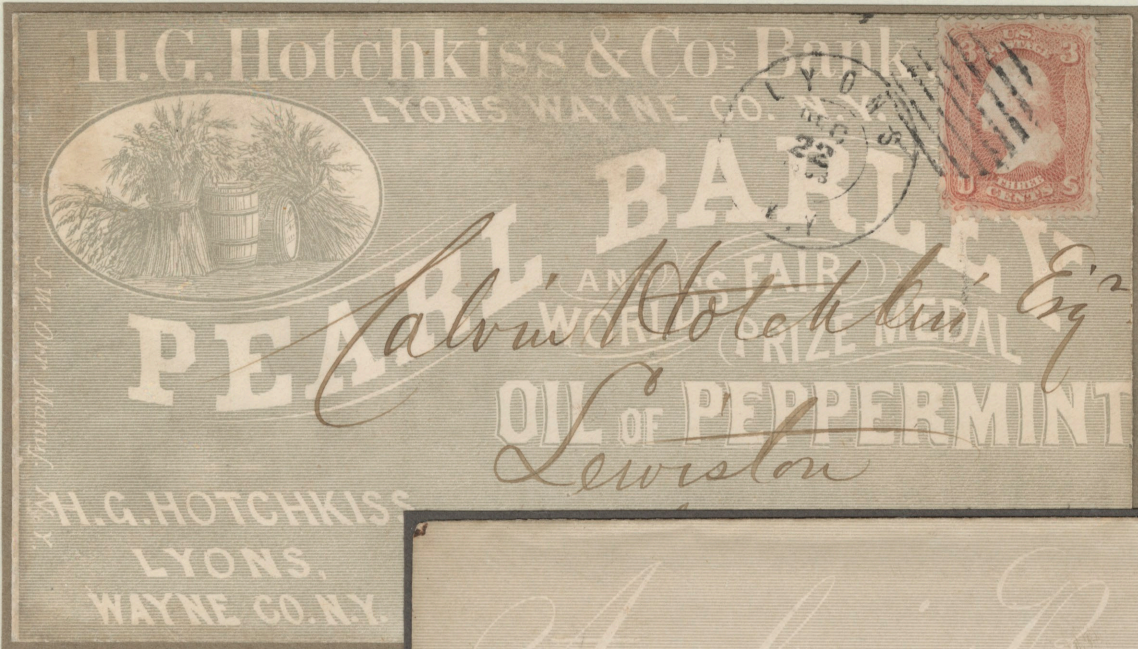 H.G. Hotchkiss & Cos Bank
LYONS WAYNE CO. N.Y.
U.S. POSTAGE
3 3
THREE
CENTS
U S
LYONS
DEC
22
N.Y.
PEARL BARLEY
AND
WORLDS FAIR
PRIZE MEDAL
OIL OF PEPPERMINT
Calvin Hotchkiss Esqr
Lewiston
J. W. Orr Manuf. N.Y.
H.G. HOTCHKISS
LYONS,
WAYNE CO. N.Y.